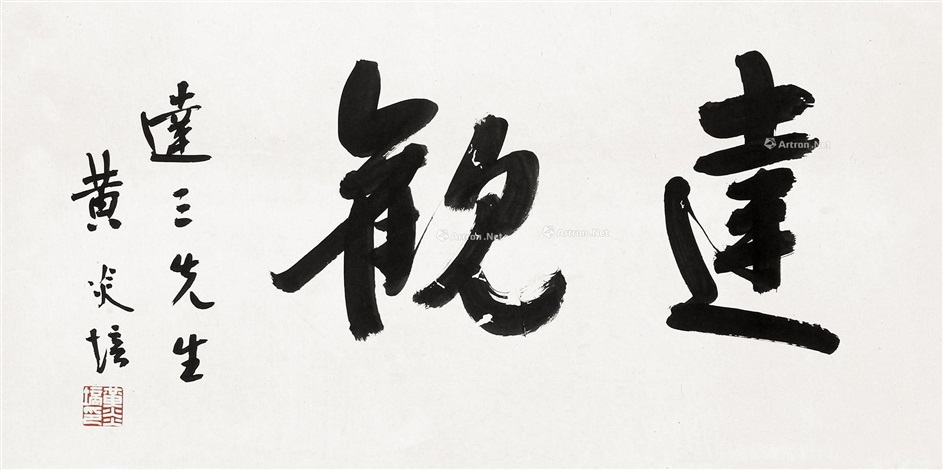 達觀
達三先生
黄炎培
黄炎培印
Artron.Net
Artron.Net
Artron.Net